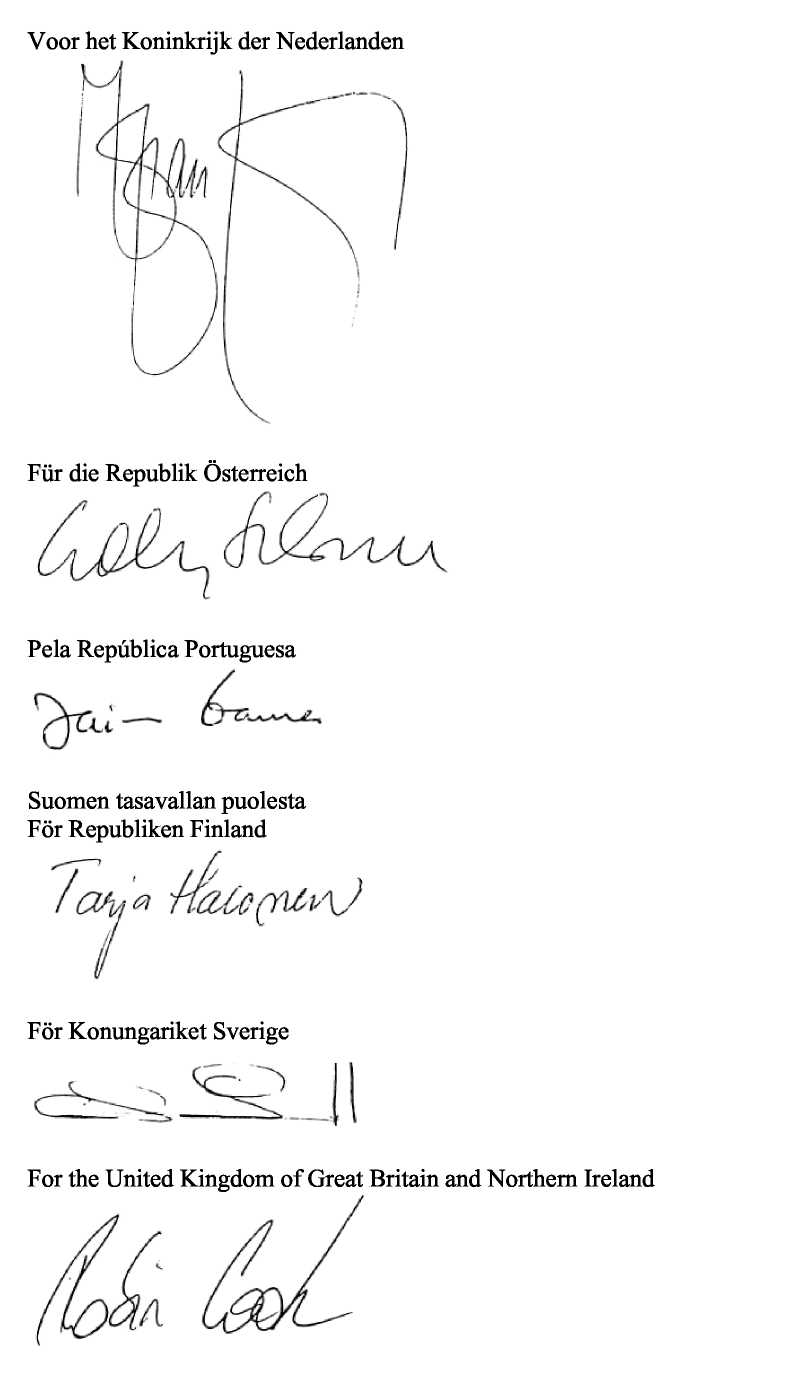 Voor het Koninkrijk der Nederlanden
Für die Republik Österreich
Pela República Portuguesa
Jaime Gama
Suomen tasavallan puolesta
För Republiken Finland
Tarja Halonen
För Konungariket Sverige
For the United Kingdom of Great Britain and Northern Ireland
Robin Cook